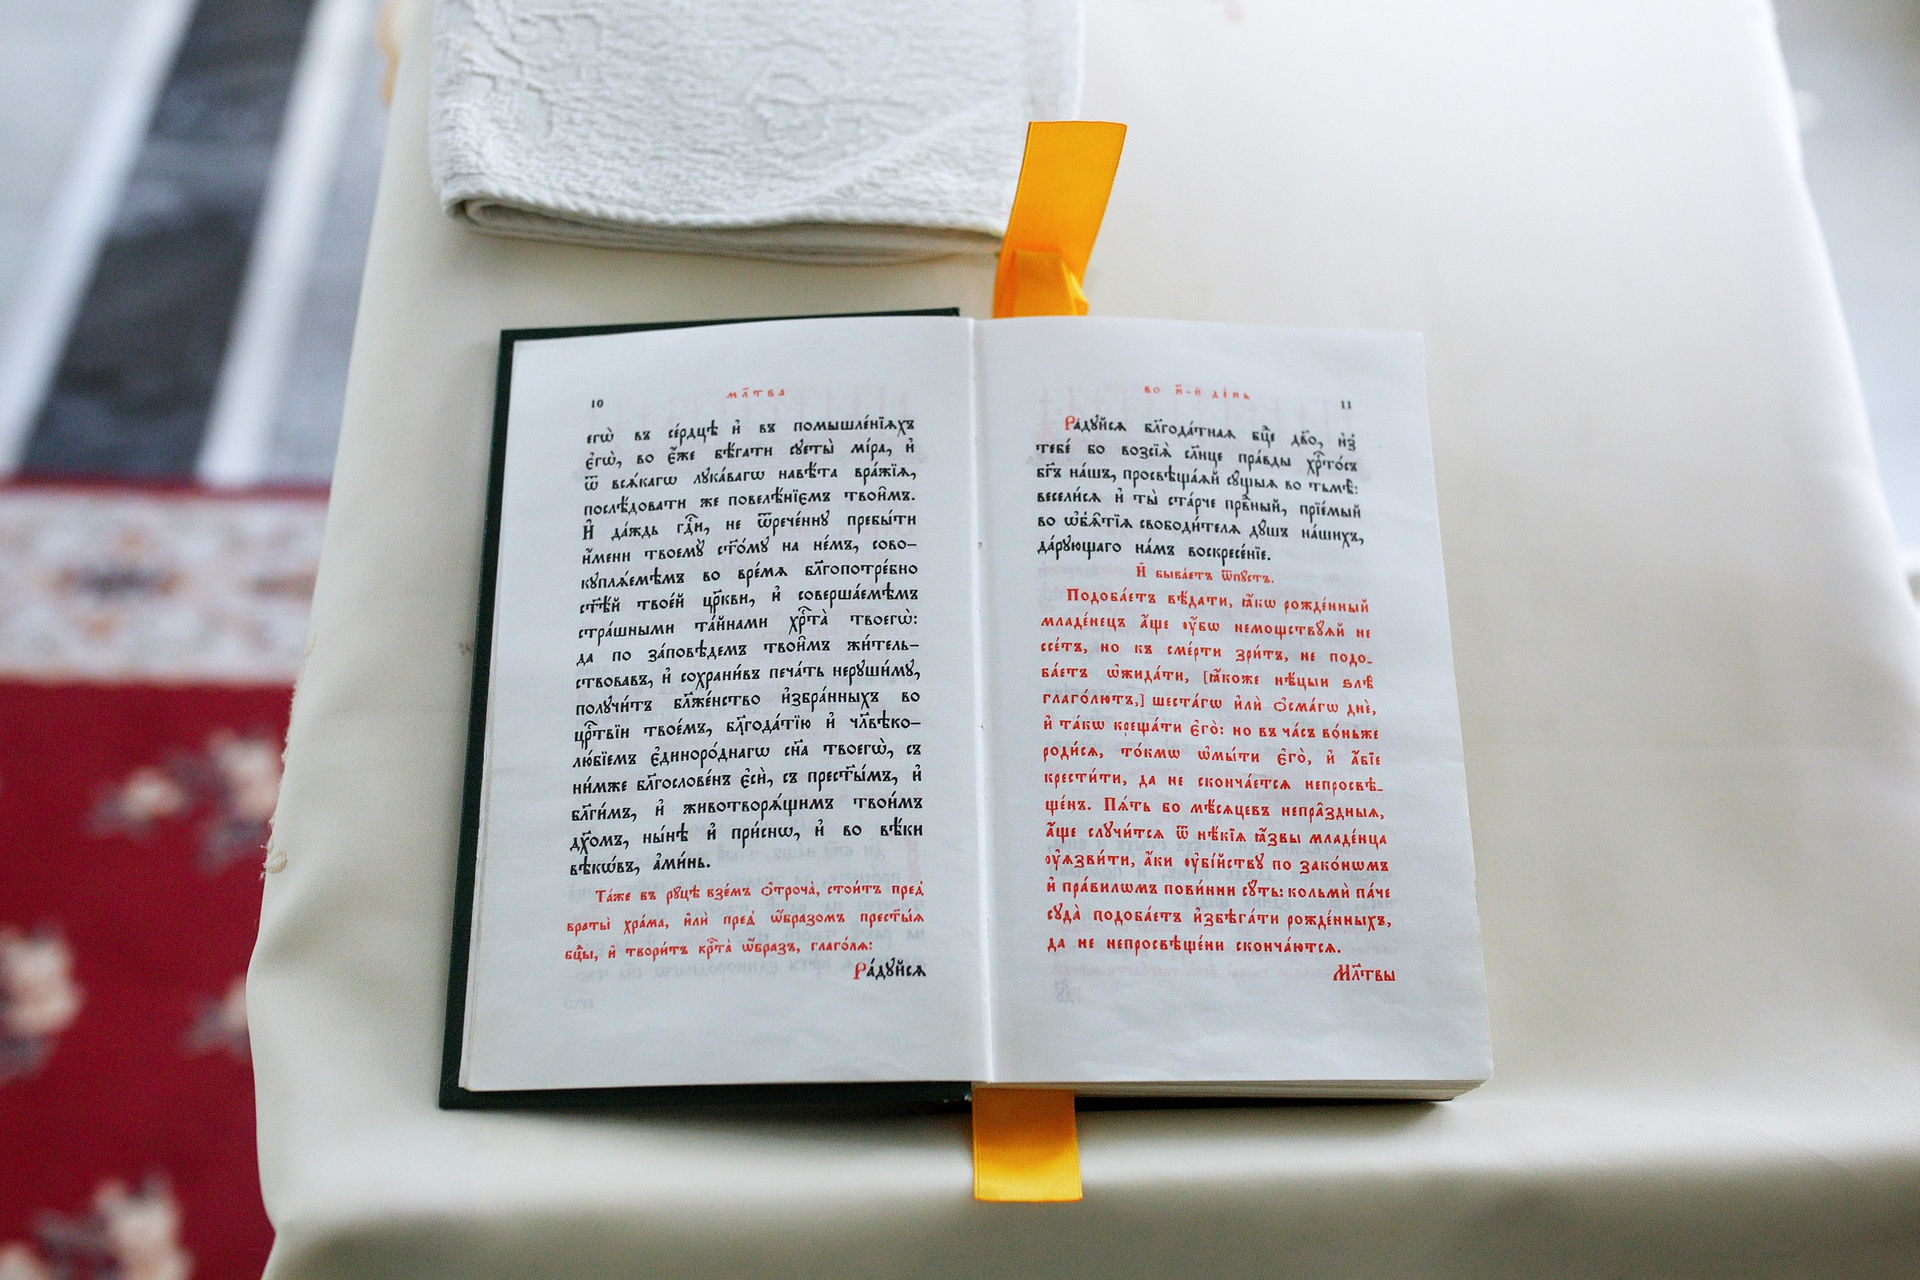 10
мл҃тва
егѡ̀ въ се́рдцѣ и҆ въ помышле́нїѧхъ
є҆гѡ̀, во є҆́же бѣ́гати сꙋеты̀ мі́ра, и҆
ѿ всѧ́кагѡ лꙋка́вагѡ навѣ́та вра́жїѧ,
послѣ́довати же повелѣ́нїємъ твои̑мъ.
И҆ да́ждь гдⷭ҇и, не ѿрече́ннꙋ пребы́ти
и҆́мени твоемꙋ̀ ст҃о́мꙋ на не́мъ, сово-
кꙋплѧ́емѣмъ во вре́мѧ бл҃гопотре́бно
ст҃ѣ́й твое́й цр҃кви, и҆ соверша́емѣмъ
стра́шными та́йнами хрⷭ҇та̀ твоегѡ̀:
да по за́повѣдемъ твои̑мъ жи́тель-
ствовавъ, и҆ сохрани́въ печа́ть нерꙋши́мꙋ,
полꙋчи́тъ бл҃же́нство и҆збра́нныхъ во
црⷭ҇твїи твое́мъ, бл҃года́тїю и҆ чл҃вѣко-
лю́бїемъ є҆диноро́днагѡ сн҃а твоегѡ̀, съ
ни́мже бл҃гослове́нъ є҆сѝ, съ прест҃ы́мъ, и҆
бл҃ги́мъ, и҆ животворѧ́щимъ твои́мъ
дх҃омъ, ны́нѣ и҆ при́снѡ, и҆ во вѣ́ки
вѣкѡ́въ, а҆ми́нь.
Та́же въ рꙋцѣ̀ взе́мъ ѻ҆троча̀, стои́тъ пред̾
враты̀ хра́ма, и҆лѝ пред̾ ѡ҆́бразомъ прест҃ы́ѧ
бцⷣы, и҆ твори́тъ крⷭ҇та̀ ѡ҆́бразъ, глаго́лѧ:
Ра́дꙋйсѧ
во и҃-й де́нь
11
Ра́дꙋйсѧ бл҃года́тнаѧ бцⷣе дв҃о, и҆з̾
тебе́ бо возсїѧ̀ сл҃нце пра́вды хрⷭ҇то́съ
бг҃ъ на́шъ, просвѣща́ѧй сꙋ́щыѧ во тьмѣ̀:
весели́сѧ и҆ ты̀ ста́рче првⷣный, прїе́мый
во ѡ҆б̾ѧ̑тїѧ свободи́телѧ дꙋ́шъ на́шихъ,
да́рꙋющаго на́мъ воскресе́нїе.
И҆ быва́етъ ѿпꙋ́стъ.
Подоба́етъ вѣ́дати, ꙗ҆́кѡ рожде́нный
младе́нецъ а҆́ще ᲂу҆́бѡ немощствꙋ́ѧй не
ссе́тъ, но къ сме́рти зри́тъ, не подо-
ба́етъ ѡ҆жида́ти, [ꙗ҆́коже нѣ́цыи ѕлѣ̀
глаго́лютъ,] шеста́гѡ и҆лѝ ѻ҆сма́гѡ днѐ,
и҆ та́кѡ креща́ти є҆го̀: но въ ча́съ во́ньже
роди́сѧ, то́кмѡ ѡ҆мы́ти є҆го̀, и҆ а҆́бїе
крести́ти, да не сконча́етсѧ непросвѣ-
ще́нъ. Пѧ́ть бо мѣ́сѧцевъ непра̑здныѧ,
а҆́ще слꙋчи́тсѧ ѿ нѣ́кїѧ ꙗ҆́звы младе́нца
ᲂу҆ѧзви́ти, а҆́ки ᲂу҆бі́йствꙋ по зако́нѡмъ
и҆ пра́вилѡмъ пови́нни сꙋ́ть: кольмѝ па́че
сꙋда̀ подоба́етъ и҆збѣга́ти рожде́нныхъ,
да не непросвѣще́ни сконча́ютсѧ.
Мл҃твы